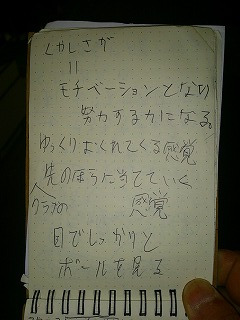 くやしさが
||
モチベーションとなり
努力する力になる。
ゆっくりおくれてくる感覚
先のほうに当てていく
クラブの 感覚
目でしっかりと
ボールを見る